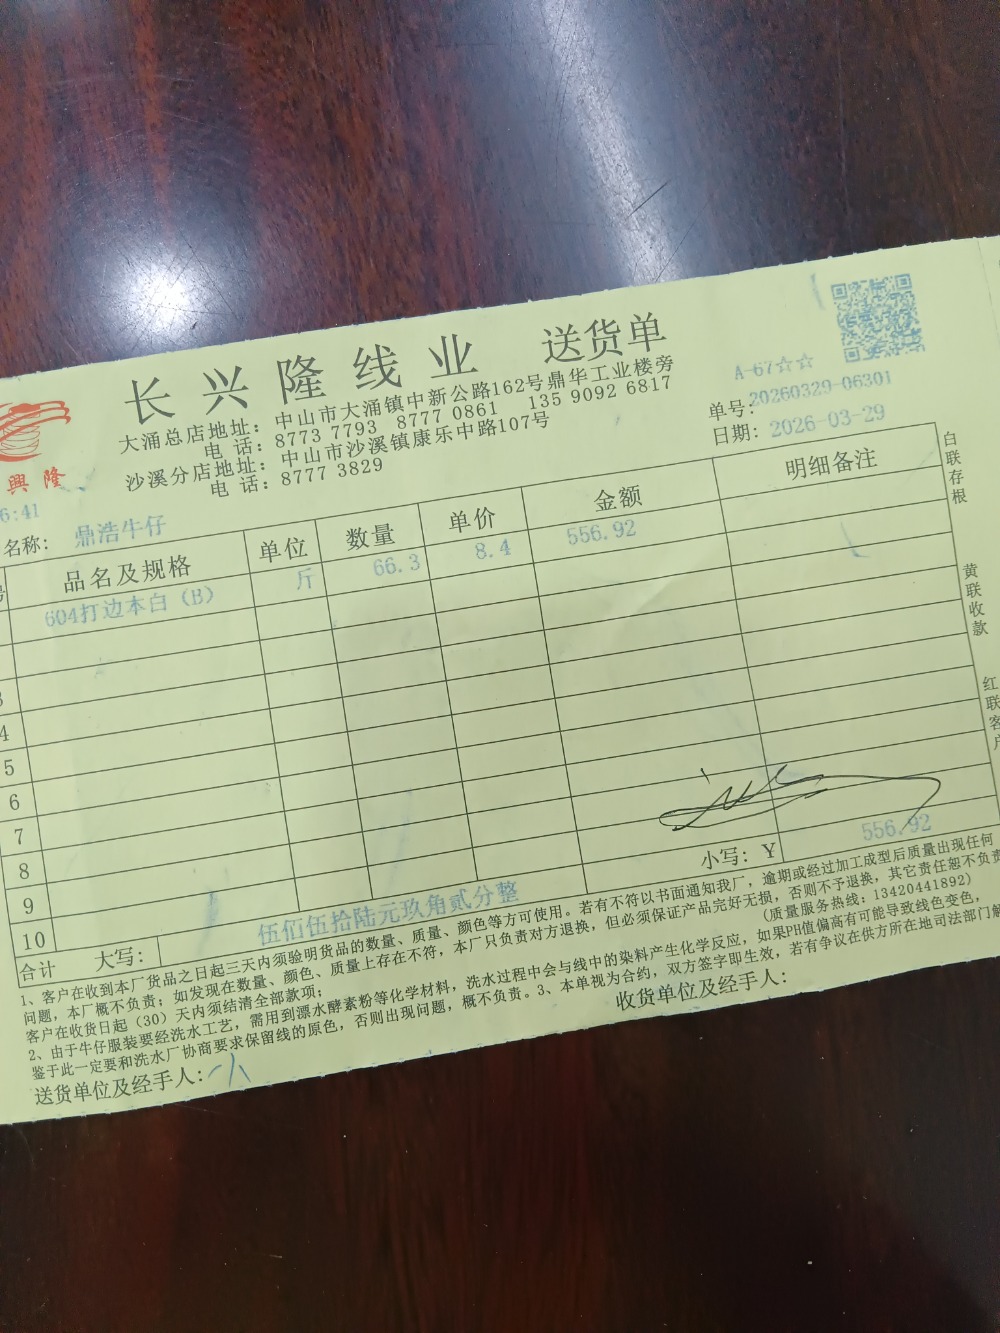 长兴隆线业 送货单
大涌总店地址：中山市大涌镇中新公路162号鼎华工业楼旁
电 话：8773 7793 8777 0861 135 9092 6817
沙溪分店地址：中山市沙溪镇康乐中路107号
电 话：8777 3829
興隆
A-67☆☆
单号：20260329-06301
日期：2026-03-29
6:41
名称：鼎浩牛仔
品名及规格 单位 数量 单价 金额 明细备注
604打边本白（B） 斤 66.3 8.4 556.92
3
4
5
6
7
8
9
10
合计 大写：伍佰伍拾陆元玖角贰分整 小写：Y 556.92
白联存根 黄联收款 红联客户
1、客户在收到本厂货品之日起三天内须验明货品的数量、质量、颜色等方可使用。若有不符以书面通知我厂，逾期或经过加工成型后质量出现任何
问题，本厂概不负责；如发现在数量、颜色、质量上存在不符，本厂只负责对方退换，但必须保证产品完好无损，否则不予退换，其它责任恕不负责
客户在收货日起（30）天内须结清全部款项； (质量服务热线：13420441892)
2、由于牛仔服装要经洗水工艺，需用到漂水酵素粉等化学材料，洗水过程中会与线中的染料产生化学反应，如果PH值偏高有可能导致线色变色，
鉴于此一定要和洗水厂协商要求保留线的原色，否则出现问题，概不负责。3、本单视为合约，双方签字即生效，若有争议在供方所在地司法部门解
送货单位及经手人： 收货单位及经手人：